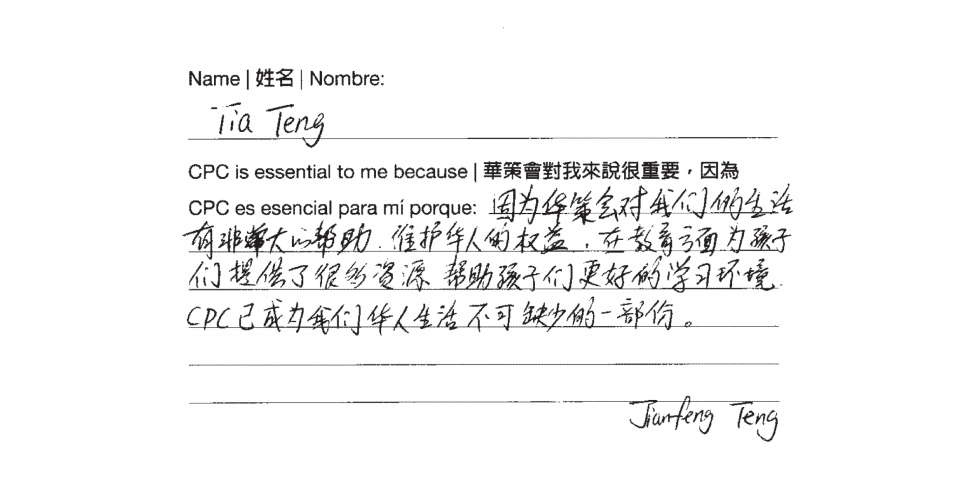 Name | 姓名 | Nombre:
Tia Teng
CPC is essential to me because | 華策會對我來說很重要，因為
CPC es esencial para mí porque: 因为华策会对我们的生活
有非常大的帮助. 维护华人的权益, 在教育方面为孩子
们提供了很多资源 帮助孩子们更好的学习环境.
CPC已成为我们华人生活不可缺少的一部份。
Jianfeng Teng